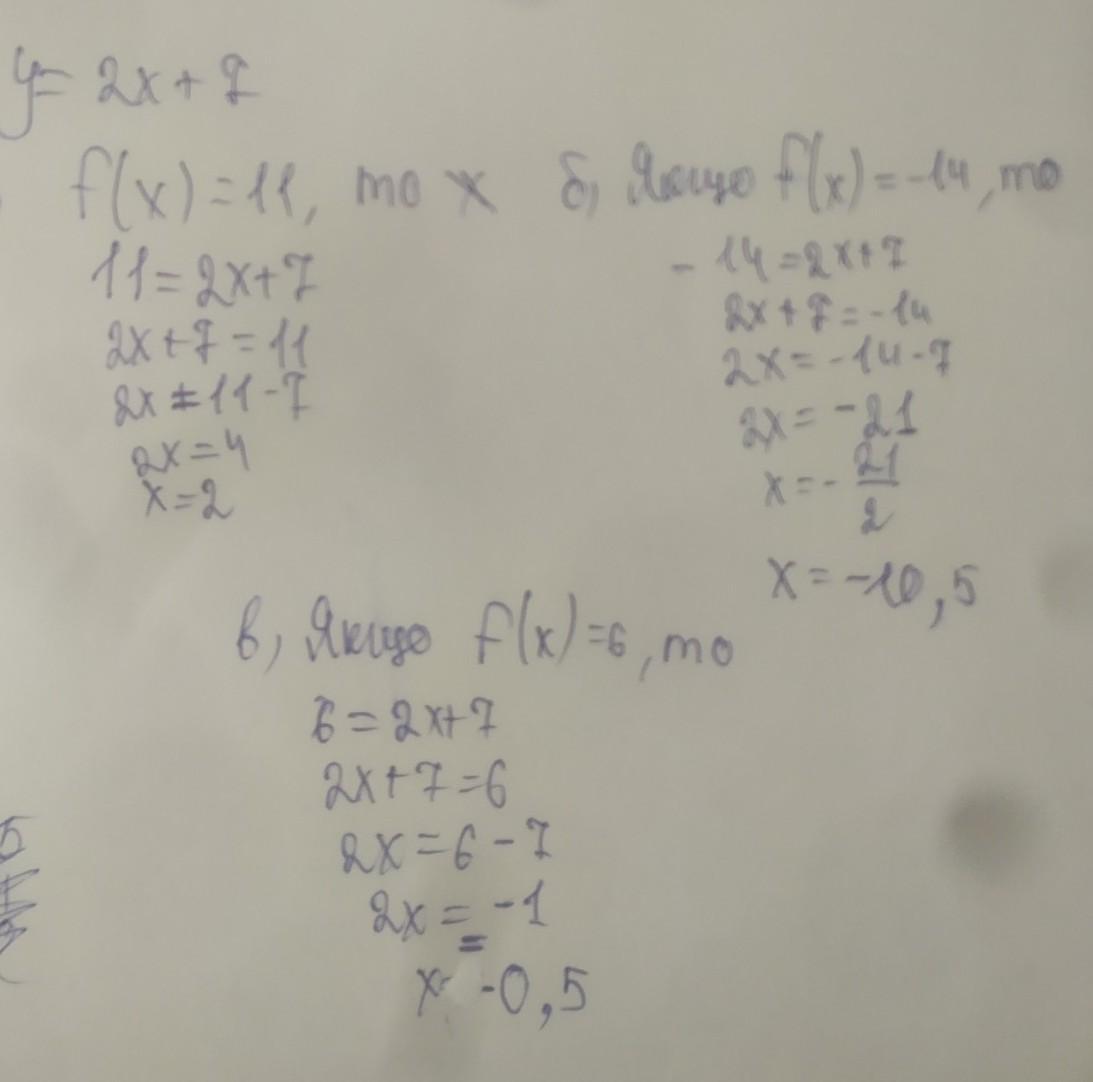 y= 2x+7
f(x)=11, то x
11=2x+7
2x+7=11
2x=11-7
2x=4
x=2
б, Якщо f(x)=-14, то
-14=2x+7
2x+7=-14
2x=-14-7
2x=-21
x=-21/2
x=-10,5
в, Якщо f(x)=6, то
6=2x+7
2x+7=6
2x=6-7
2x=-1
x=-0,5
5